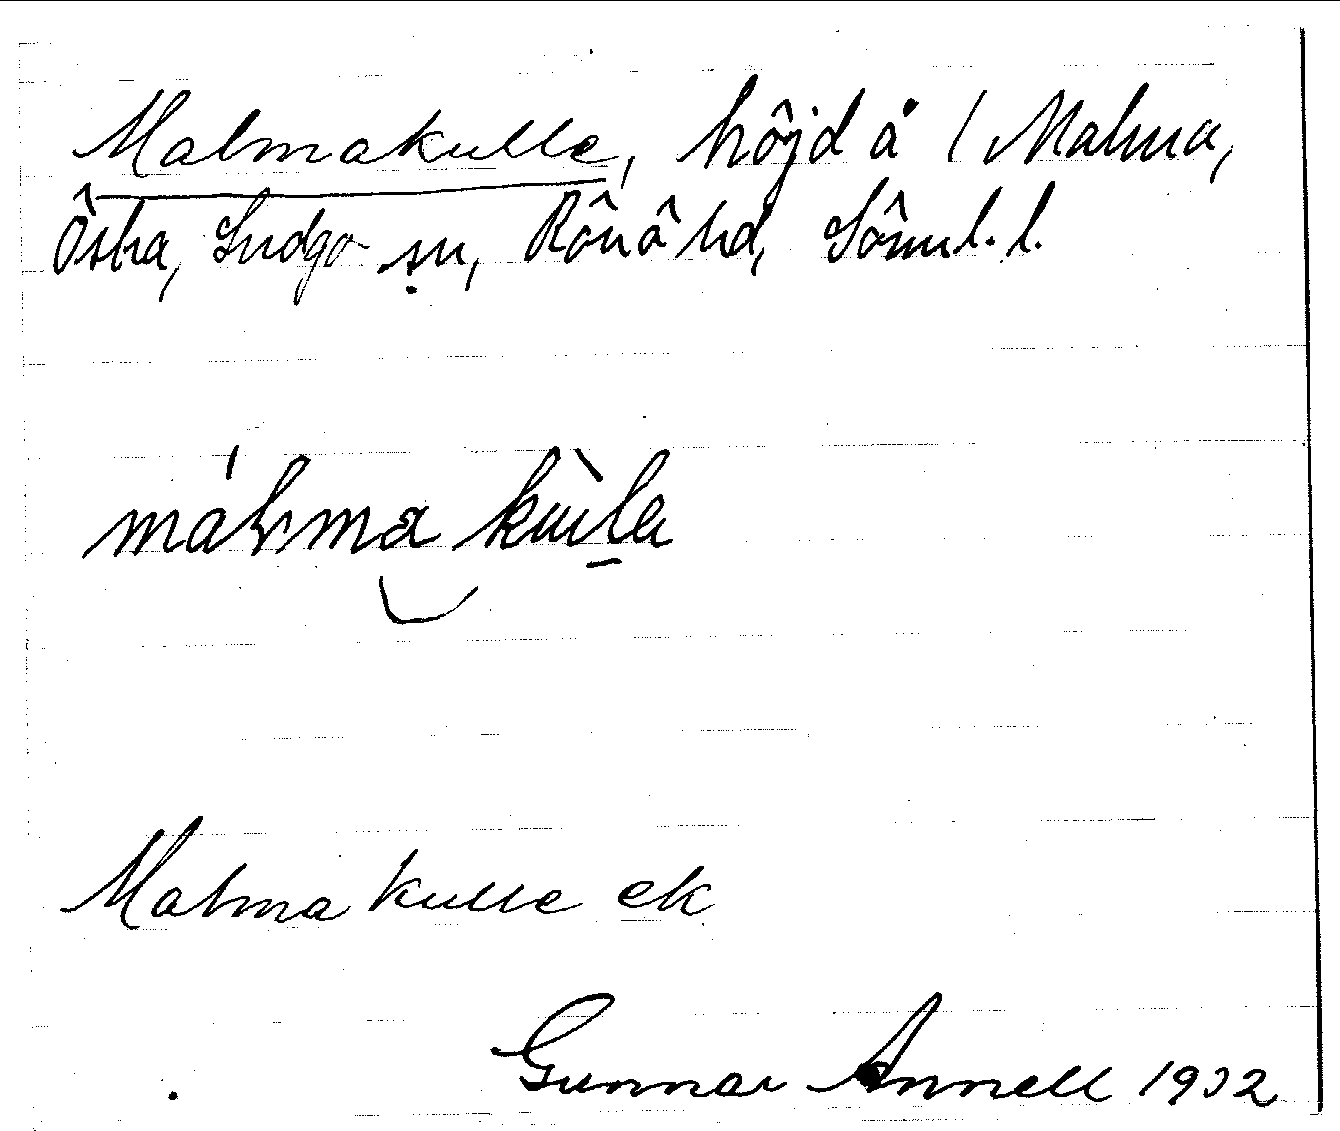 Malmakulle, höjd å 1 Malma,
Östra, Ludgo sn, Rönö hd, Söml. l.
málma kùla
Malmakulle ek
Gunnar Annell 1932